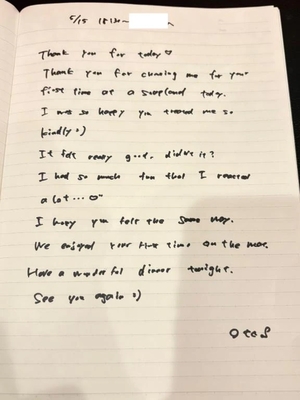 5/15 18:30~
Thank you for today♡
Thank you for choosing me for your
first time at a soapland today.
I was so happy you treated me so
kindly :)
It felt really good, didn't it?
I had so much fun that I reacted
a lot...
I hope you felt the same way.
We enjoyed your time on the mat.
Have a wonderful dinner tonight.
See you again :)